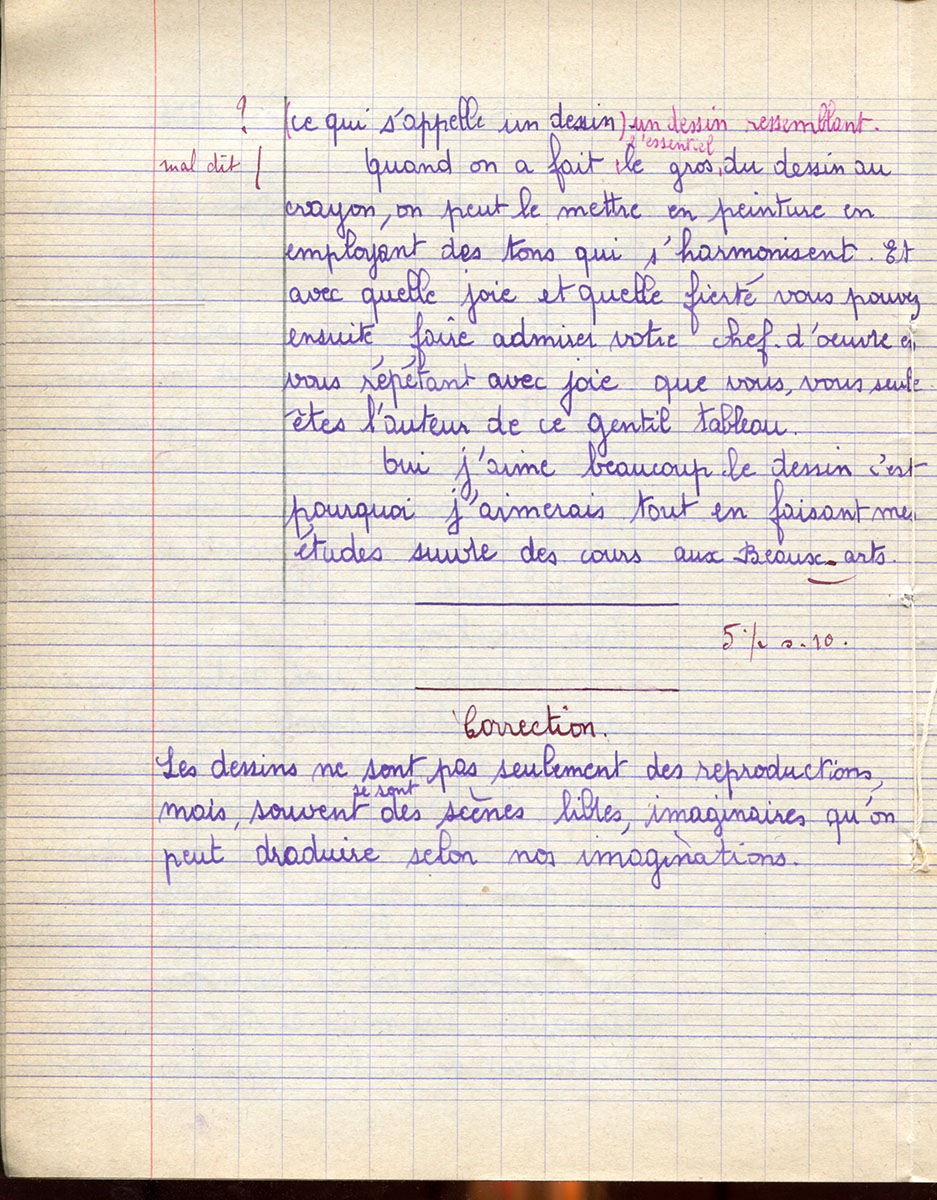 ? (ce qui s'appelle un dessin) un dessin ressemblant.
l'essentiel
mal dit / Quand on a fait le gros du dessin au
crayon, on peut le mettre en peinture en
employant des tons qui s'harmonisent. Et
avec quelle joie et quelle fierté vous pouvez
ensuite faire admirer votre chef-d'oeuvre en
vous répétant avec joie que vous, vous seule
êtes l'auteur de ce gentil tableau.
Oui j'aime beaucoup le dessin c'est
pourquoi j'aimerais tout en faisant mes
études suivre des cours aux Beaux-arts.
5 1/2 s. 10.
Correction.
Les dessins ne sont pas seulement des reproductions,
se sont
mais, souvent des scènes libres, imaginaires qu'on
peut draduire selon nos imaginations.